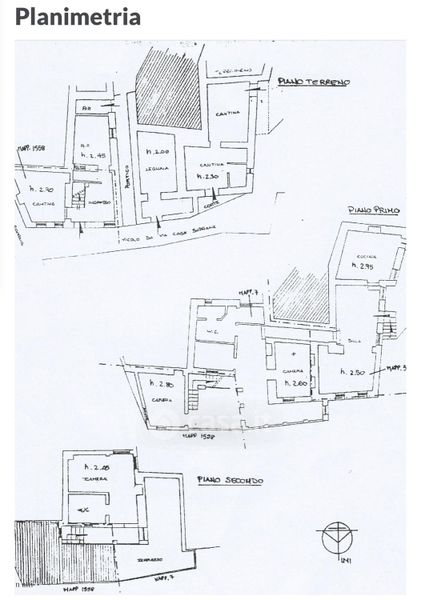 Planimetria
PIANO TERRENO
CANTINA
h. 2.00
LEGNAIA
CANTINA
h. 2.30
PORTICO
h. 2.45
INGRESSO
MAPP. 1558
h. 2.90
CANTINE
CORTE
VICOLO DA VIA CASA
PIANO PRIMO
CUCINA
h. 2.95
MAPP. 7
W.C.
SALA
CAMERA
h. 2.60
h. 2.50
h. 2.80
CAMERA
MAPP 1558
h. 2.45
CAMERA
PIANO SECONDO
TERRAZZO
MAPP 1558
MAPP. 7